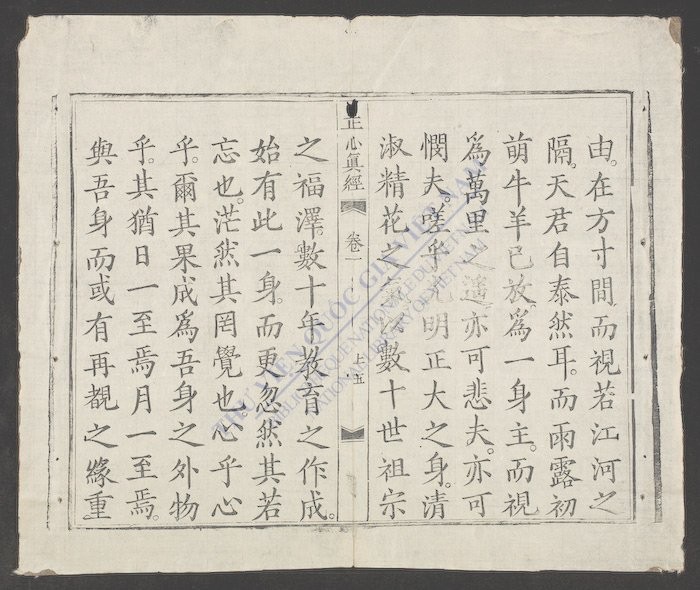 由。在方寸間。而視若江河之
隔。天君自泰然耳。而雨露初
萌牛羊已放。爲一身主。而視
爲萬里之遙亦可悲夫。亦可
憫夫。嗟乎光明正大之身。清
淑精花之氣數十世祖宗
正心眞經 卷一 上五
之福澤。數十年敎育之作成。
始有此一身。而更忽然其若
忘也。茫然其罔覺也。心乎心
乎。爾其果成爲吾身之外物
乎。其猶日一至焉月一至焉。
與吾身而或有再覩之緣重
THƯ VIỆN QUỐC GIA VIỆT NAM
BIBLIOTHÈQUE NATIONALE DU VIETNAM
NATIONAL LIBRARY OF VIETNAM